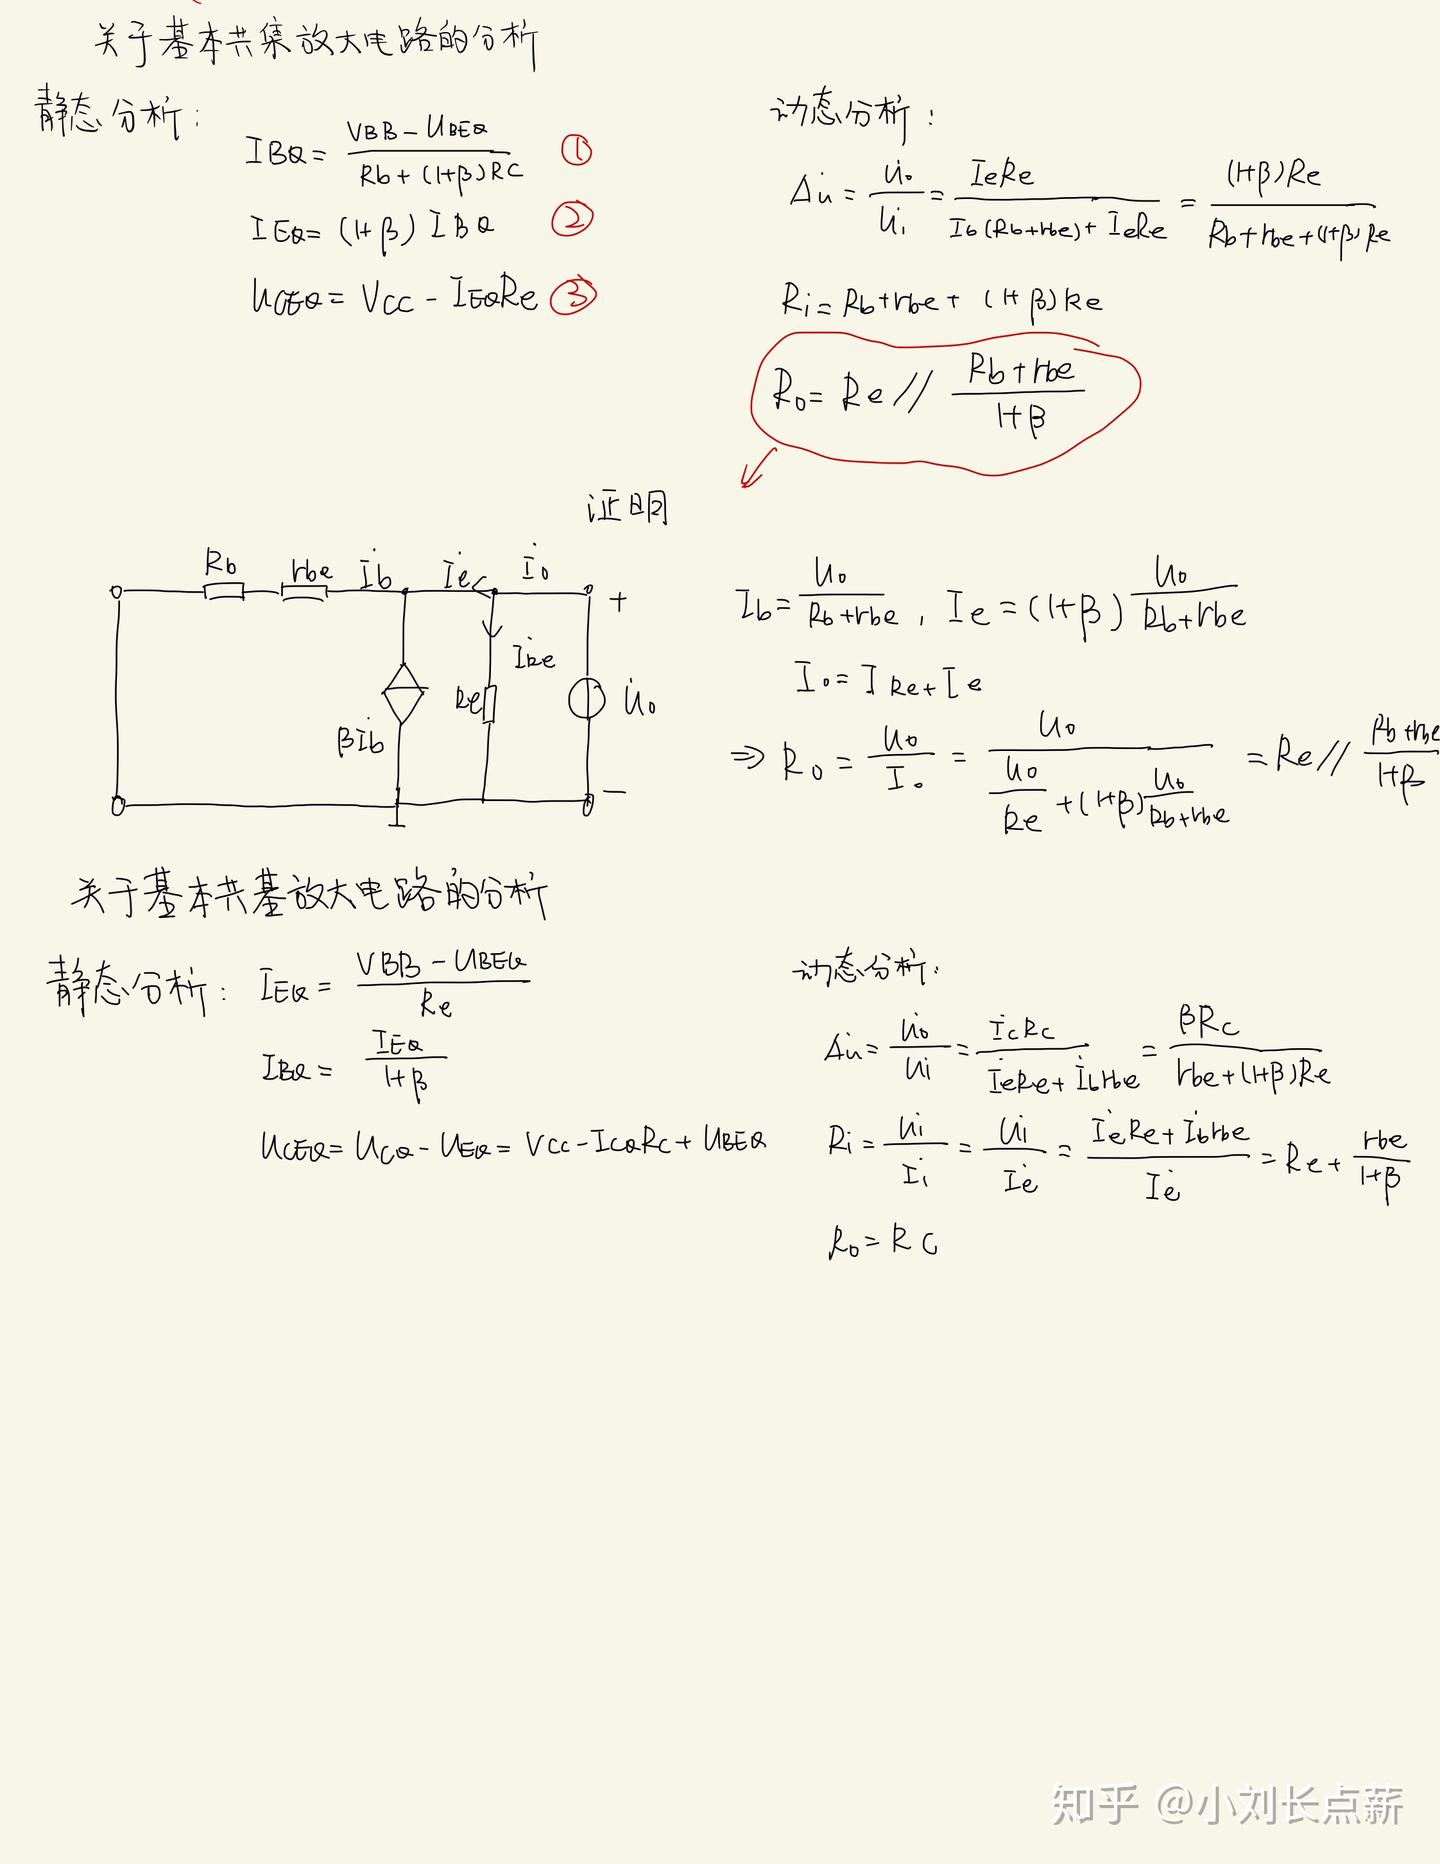 关于基本共集放大电路的分析
静态分析:
IBQ = (VBB - UBEQ) / (Rb + (1+β)RC) ①
IEQ = (1+β) IBQ ②
UCEQ = VCC - IEQRe ③
动态分析:
Au̇ = U̇o / U̇i = IeRe / (Ib(Rb+rbe) + IeRe) = (1+β)Re / (Rb+rbe+(1+β)Re)
Ri = Rb+rbe + (1+β)Re
Ro = Re // (Rb+rbe) / (1+β)
证明
Rb rbe İb İe İo +
İRe
Re U̇o
βİb
−
Ib = Uo / (Rb+rbe), Ie = (1+β) Uo / (Rb+rbe)
Io = IRe + Ie
⇒ Ro = Uo / Io = Uo / (Uo/Re + (1+β) Uo/(Rb+rbe)) = Re // (Rb+rbe) / (1+β)
关于基本共基放大电路的分析
静态分析: IEQ = (VBB - UBEQ) / Re
IBQ = IEQ / (1+β)
UCEQ = UCQ - UEQ = VCC - ICQRC + UBEQ
动态分析:
Au̇ = U̇o / U̇i = İcRc / (İeRe + İbrbe) = βRc / (rbe+(1+β)Re)
Ri = U̇i / İi = U̇i / İe = (İeRe + İbrbe) / İe = Re + rbe / (1+β)
Ro = RC
知乎 @小刘长点薪